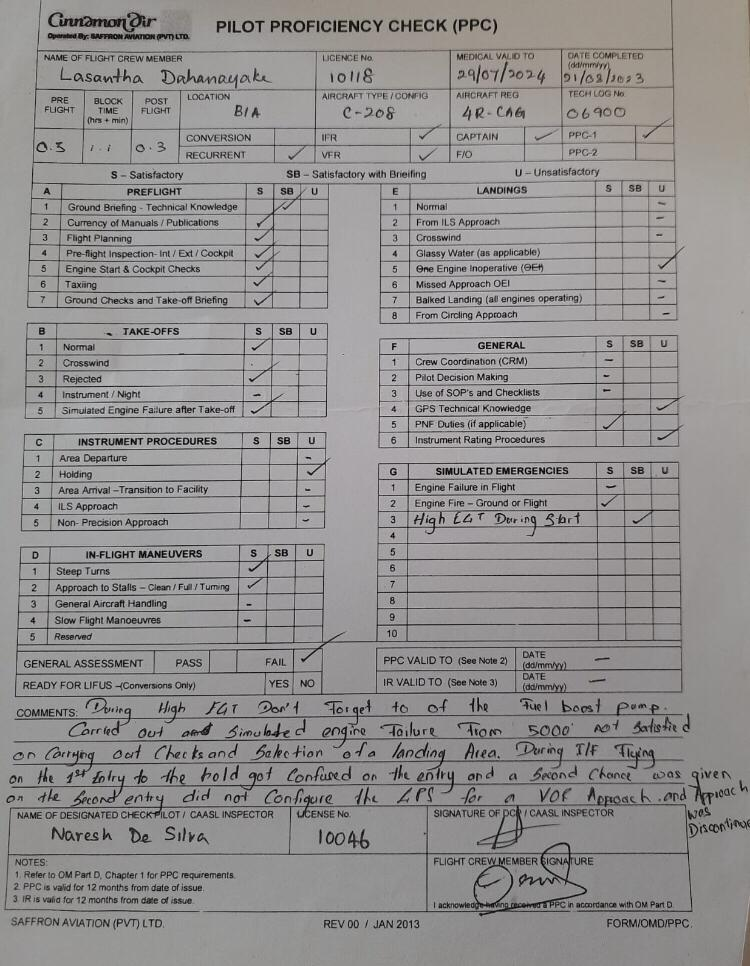 Cinnamon Air
Operated By: SAFFRON AVIATION (PVT) LTD.
PILOT PROFICIENCY CHECK (PPC)
NAME OF FLIGHT CREW MEMBER LICENCE No. MEDICAL VALID TO DATE COMPLETED (dd/mm/yy)
Lasantha Dahanayake 10118 29/07/2024 01/08/2023
PRE FLIGHT BLOCK TIME (hrs + min) POST FLIGHT LOCATION AIRCRAFT TYPE / CONFIG AIRCRAFT REG TECH LOG No.
BIA C-208 4R-CAG 06900
0.5 1.1 0.3 CONVERSION IFR ✓ CAPTAIN ✓ PPC-1 ✓
RECURRENT ✓ VFR ✓ F/O PPC-2
S – Satisfactory SB – Satisfactory with Brieifing U – Unsatisfactory
A PREFLIGHT S SB U
1 Ground Briefing - Technical Knowledge ✓
2 Currency of Manuals / Publications ✓
3 Flight Planning ✓
4 Pre-flight Inspection- Int / Ext / Cockpit ✓
5 Engine Start & Cockpit Checks ✓
6 Taxiing ✓
7 Ground Checks and Take-off Briefing ✓
B TAKE-OFFS S SB U
1 Normal ✓
2 Crosswind
3 Rejected ✓
4 Instrument / Night –
5 Simulated Engine Failure after Take-off ✓
C INSTRUMENT PROCEDURES S SB U
1 Area Departure –
2 Holding ✓
3 Area Arrival –Transition to Facility –
4 ILS Approach –
5 Non- Precision Approach –
D IN-FLIGHT MANEUVERS S SB U
1 Steep Turns ✓
2 Approach to Stalls – Clean / Full / Turning ✓
3 General Aircraft Handling –
4 Slow Flight Manoeuvres –
5 Reserved
E LANDINGS S SB U
1 Normal –
2 From ILS Approach –
3 Crosswind –
4 Glassy Water (as applicable)
5 One Engine Inoperative (OEI) ✓
6 Missed Approach OEI –
7 Balked Landing (all engines operating) –
8 From Circling Approach –
F GENERAL S SB U
1 Crew Coordination (CRM) –
2 Pilot Decision Making –
3 Use of SOP's and Checklists –
4 GPS Technical Knowledge ✓
5 PNF Duties (if applicable) ✓
6 Instrument Rating Procedures ✓
G SIMULATED EMERGENCIES S SB U
1 Engine Failure in Flight –
2 Engine Fire – Ground or Flight ✓
3 High EGT During Start ✓
4
5
6
7
8
9
10
GENERAL ASSESSMENT PASS FAIL ✓
READY FOR LIFUS –(Conversions Only) YES NO
PPC VALID TO (See Note 2) DATE (dd/mm/yy) –
IR VALID TO (See Note 3) DATE (dd/mm/yy) –
COMMENTS: During High EGT Don't Forget to of the Fuel boost pump.
Carried out Simulated engine Failure From 5000' not Satisfied
on Carrying out Checks and Selection of a landing Area. During I/F Flying
on the 1st Entry to the hold got Confused on the entry and a Second Chance was given
on the Second entry did not Configure the GPS for a VOR Approach and Approach
was
Discontinue
NAME OF DESIGNATED CHECK PILOT / CAASL INSPECTOR LICENSE No. SIGNATURE OF DCP / CAASL INSPECTOR
Naresh De Silva 10046
NOTES:
1. Refer to OM Part D, Chapter 1 for PPC requirements.
2. PPC is valid for 12 months from date of issue.
3. IR is valid for 12 months from date of issue.
FLIGHT CREW MEMBER SIGNATURE
I acknowledge having received a PPC in accordance with OM Part D.
SAFFRON AVIATION (PVT) LTD. REV 00 / JAN 2013 FORM/OMD/PPC.